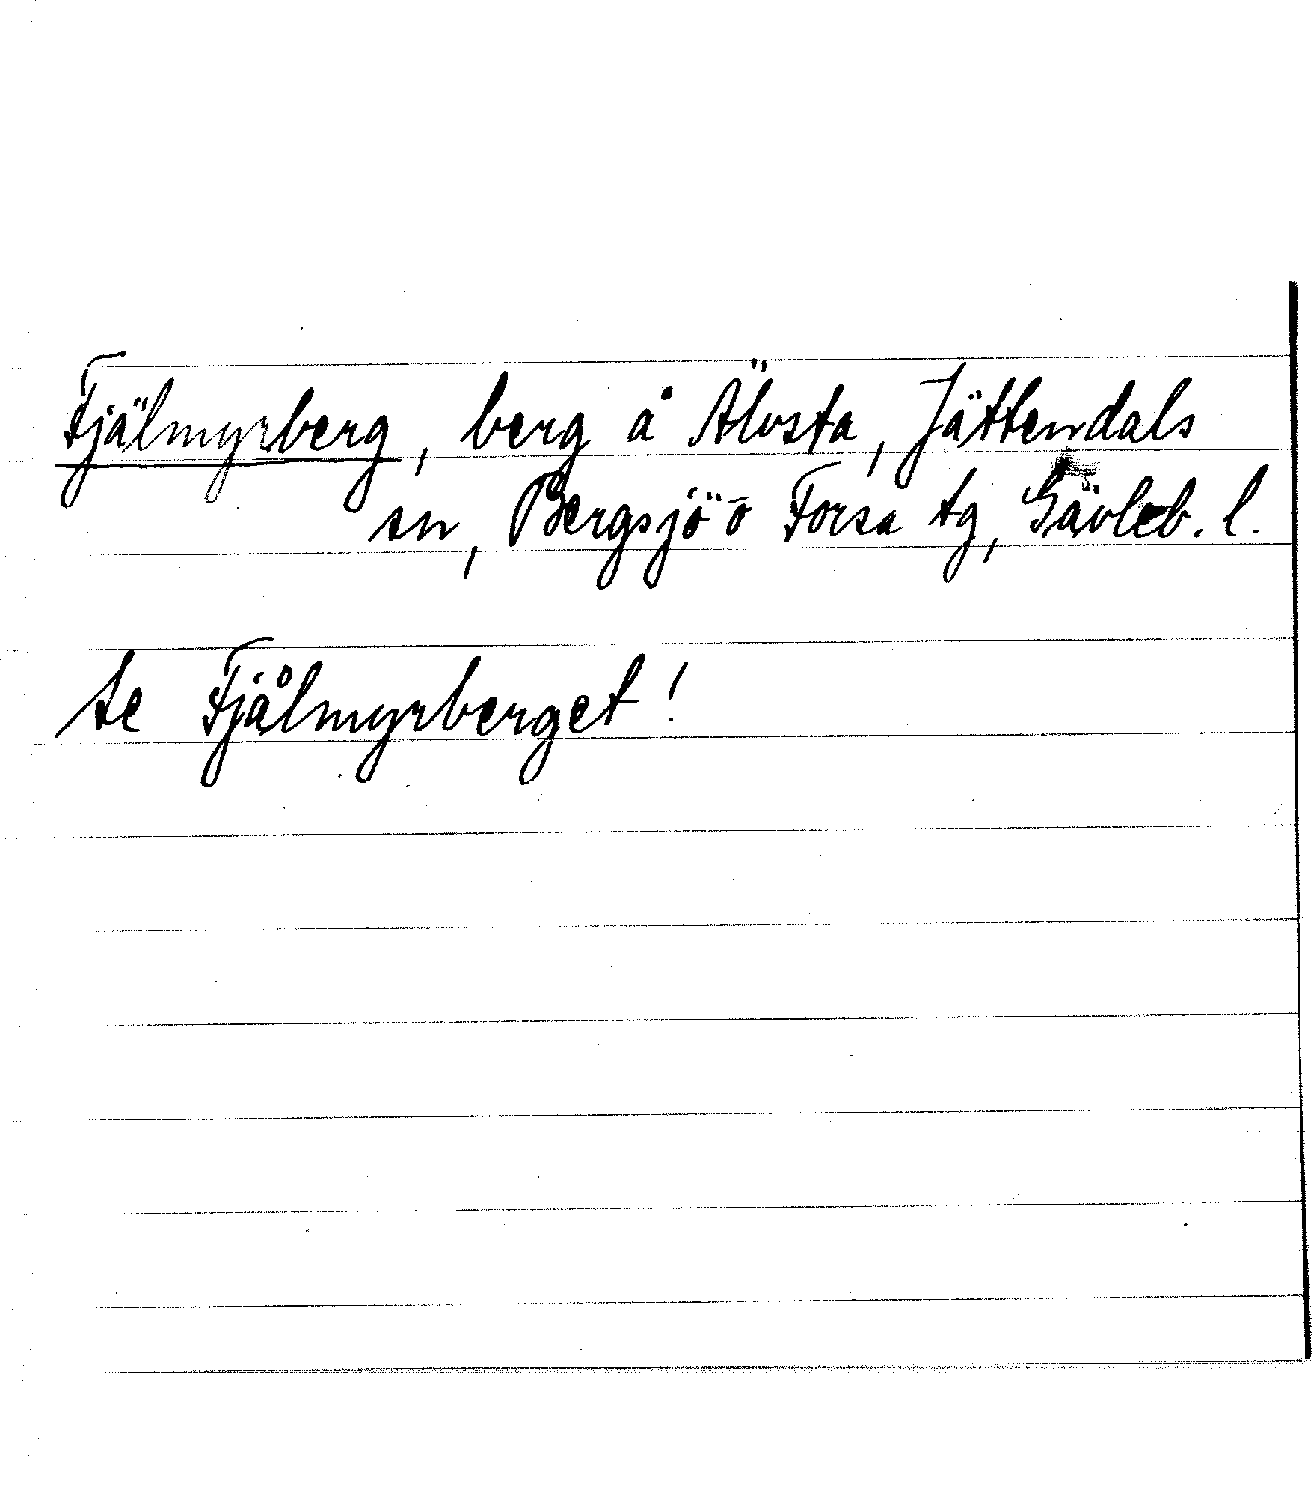 Fjälmyrberg, berg å Älvsta, Jättendals
sn, Bergsjö o Forsa tg, Gävleb. l.
te Fjålmyrberget!